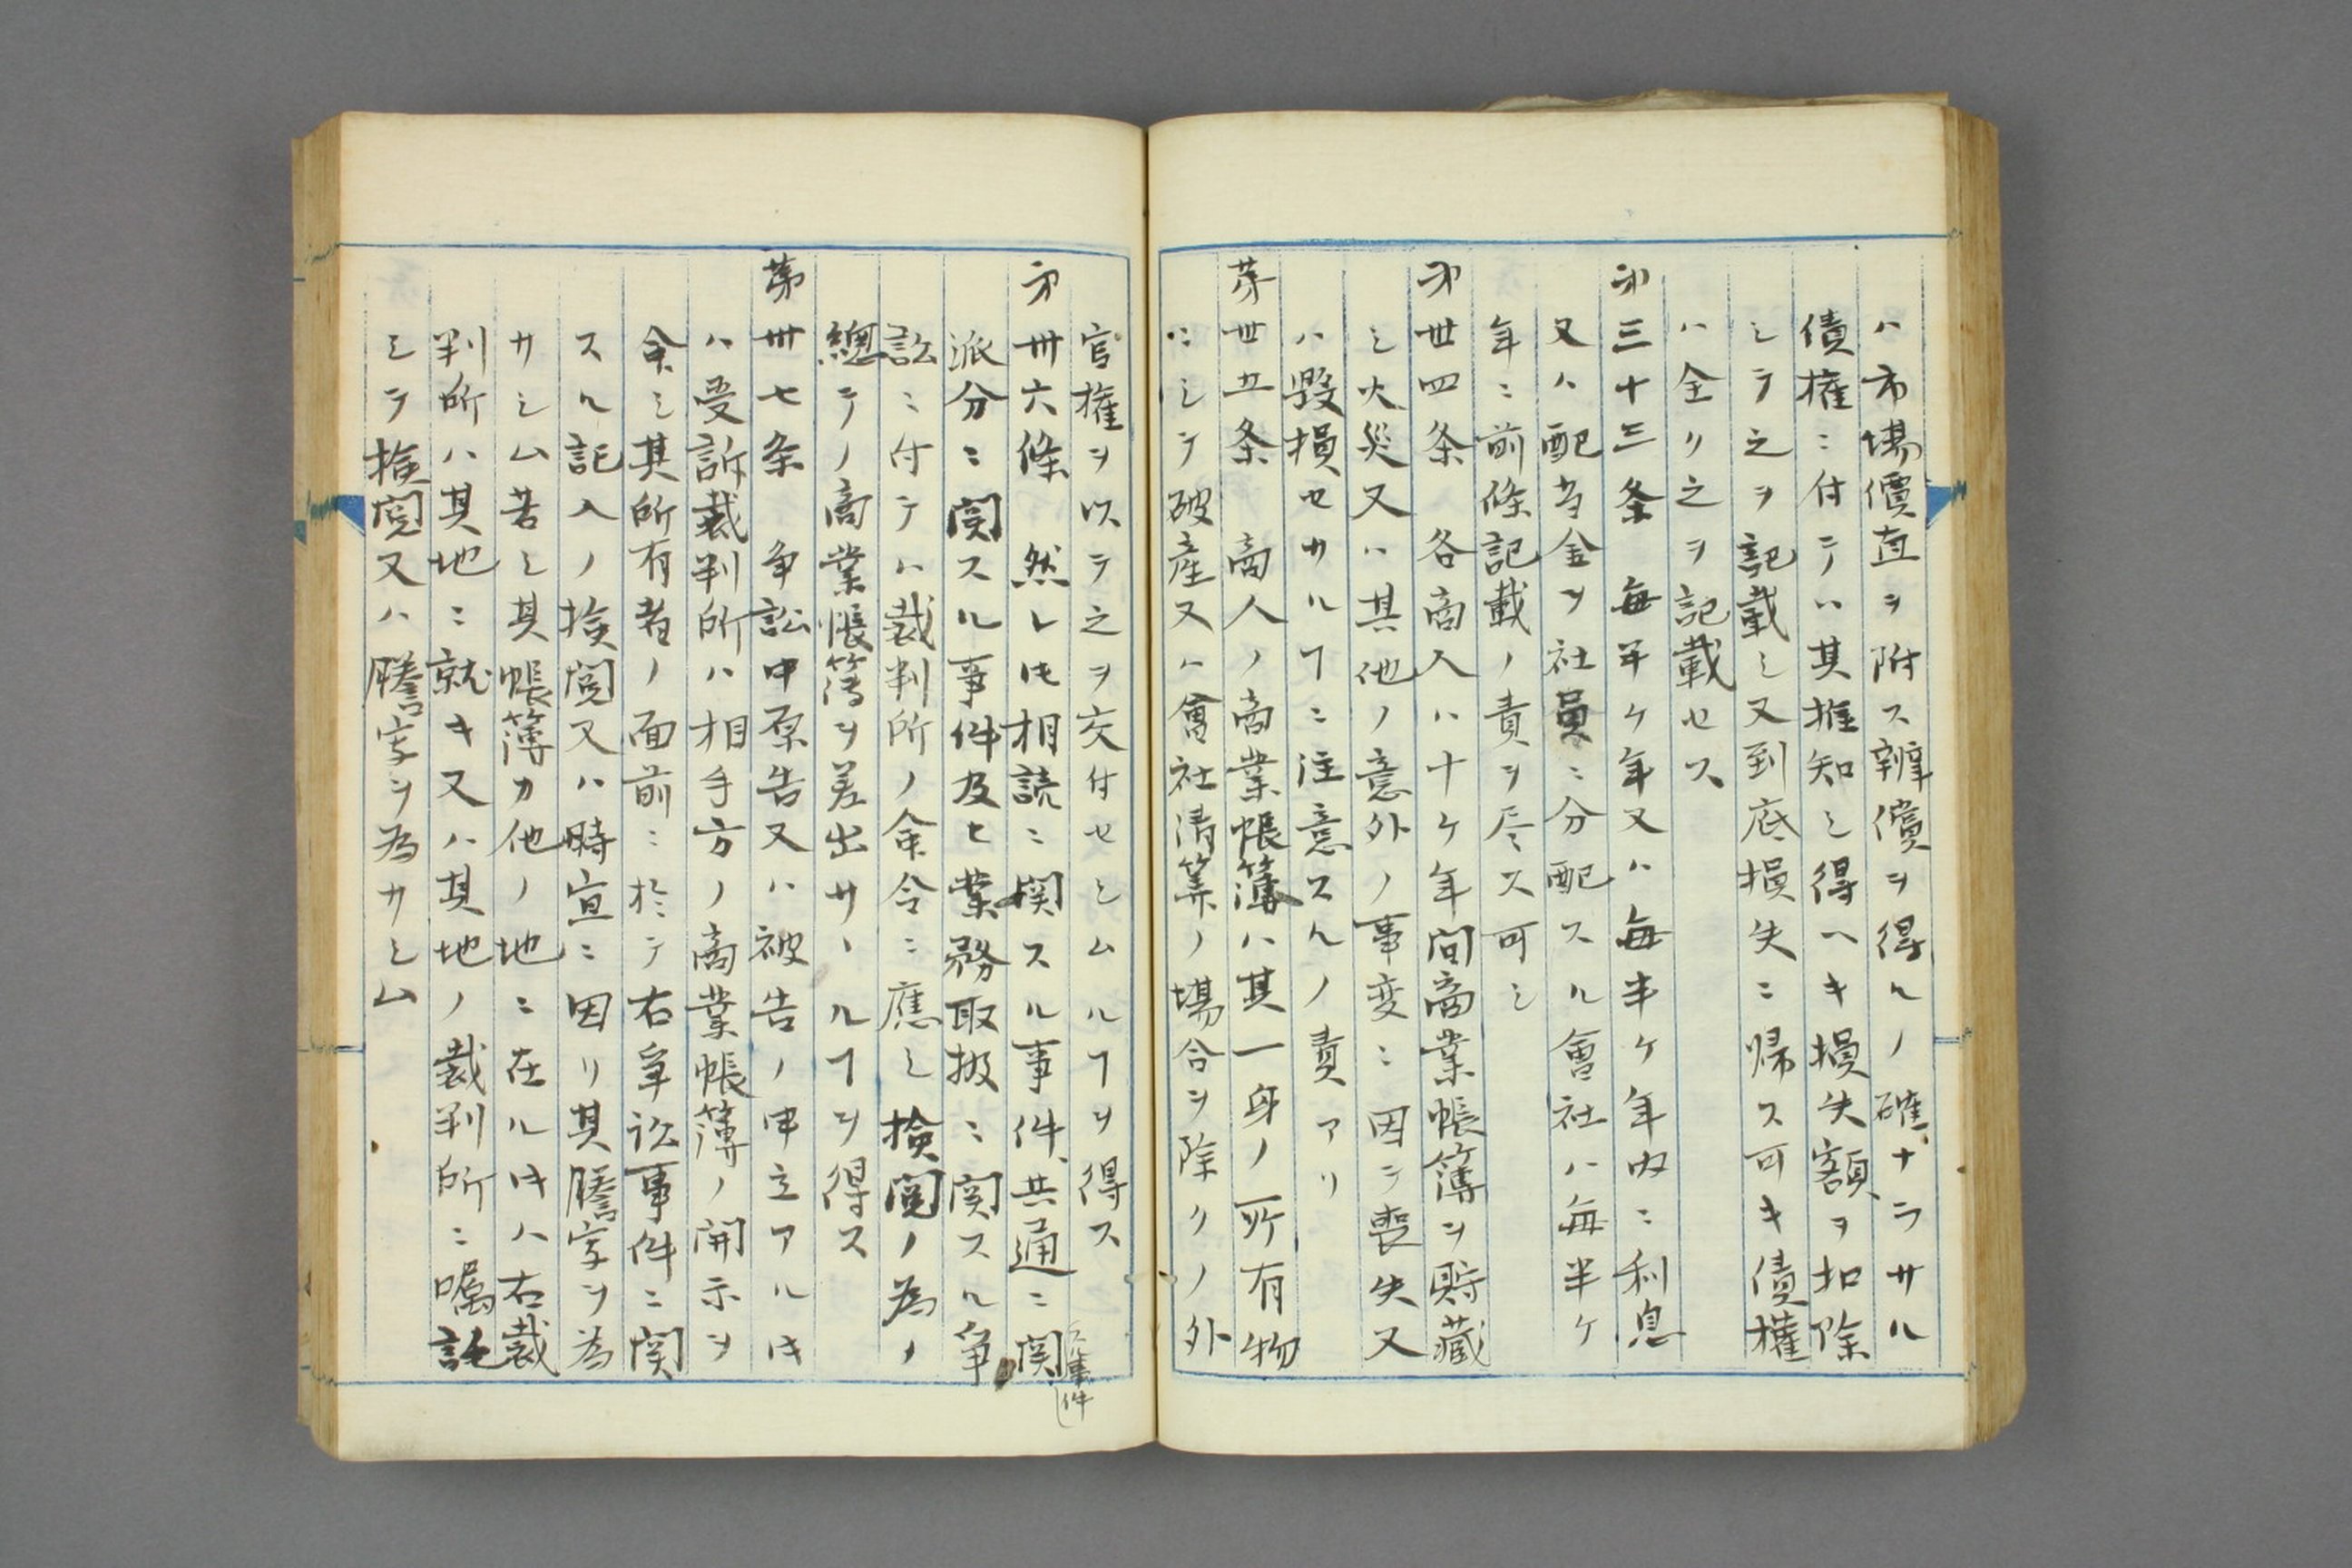 ハ市場價直ヲ附ス辨償ヲ得ルノ確ナラサル
債権ニ付テハ其推知シ得ヘキ損失額ヲ扣除
シテ之ヲ記載シ又到底損失ニ帰ス可キ債権
ハ全ク之ヲ記載セス
第三十三条 毎半ケ年又ハ毎半ケ年内ニ利息
又ハ配当金ヲ社員ニ分配スル會社ハ毎半ケ
年ニ前條記載ノ責ヲ尽ス可シ
第丗四条 各商人ハ十ケ年間商業帳簿ヲ貯藏
シ火災又ハ其他ノ意外ノ事変ニ因テ喪失又
ハ毀損セサルヿニ注意スルノ責アリ
第丗五条 商人ノ商業帳簿ハ其一身ノ所有物
ニシテ破産又ハ會社清算ノ場合ヲ除クノ外
官権ヲ以テ之ヲ交付セシムルヿヲ得ス
第丗六條 然レ𪜈相続ニ関スル事件、共通ニ関
スル事件
派分ニ関スル事件及ヒ業務取扱ニ関スル争
訟ニ付テハ裁判所ノ命令ニ應シ検閲ノ為ノ
總テノ商業帳簿ヲ差出サヽルヿヲ得ス
第丗七条 争訟中原告又ハ被告ノ申立アル𪜈
ハ受訴裁判所ハ相手方ノ商業帳簿ノ開示ヲ
命シ其所有者ノ面前ニ於テ右争訟事件ニ関
スル記入ノ検閲又ハ時宜ニ因リ其謄写ヲ為
サシム若シ其帳簿カ他ノ地ニ在ル𪜈ハ右裁
判所ハ其地ニ就キ又ハ其地ノ裁判所ニ嘱託
シテ検閲又ハ謄写ヲ為サシム